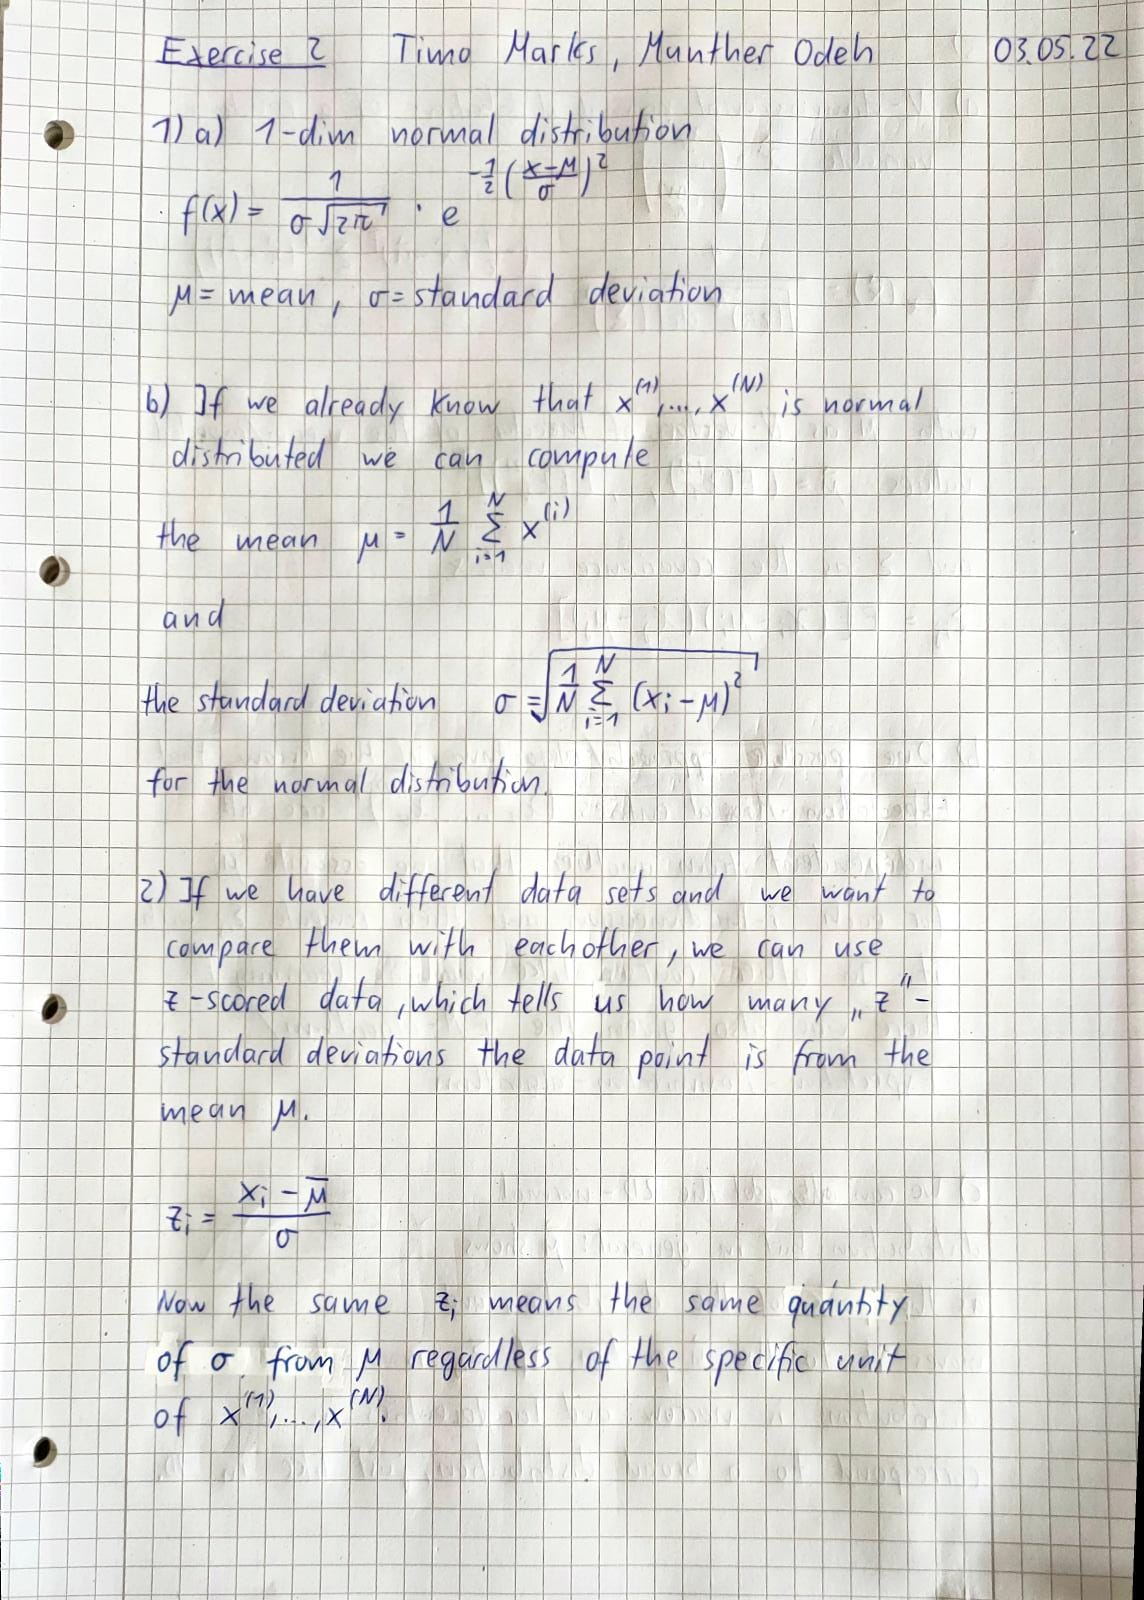 Exercise 2 Timo Marks, Munther Odeh 03.05.22
1) a) 1-dim normal distribution
f(x) = 1/(σ√(2π)) · e^(-1/2 ((x-μ)/σ)²)
μ = mean, σ = standard deviation
b) If we already know that x^(1),...,x^(N) is normal
distributed we can compute
the mean μ = 1/N Σ_{i=1}^{N} x^(i)
and
the standard deviation σ = √(1/N Σ_{i=1}^{N} (x_i - μ)²)
for the normal distribution.
2) If we have different data sets and we want to
compare them with eachother, we can use
z-scored data, which tells us how many „z"-
standard deviations the data point is from the
mean μ.
z_i = (x_i - μ̅)/σ
Now the same z_i means the same quantity
of σ from μ regardless of the specific unit
of x^(1),...,x^(N).